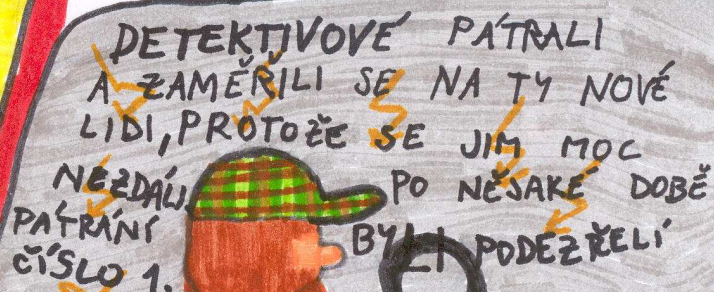 DETEKTIVOVÉ PÁTRALI
A ZAMĚŘILI SE NA TY NOVÉ
LIDI, PROTOŽE SE JIM MOC
NEZDÁLI, PO NĚJAKÉ DOBĚ
PÁTRÁNÍ BYLI PODEZŘELÍ
ČÍSLO 1.